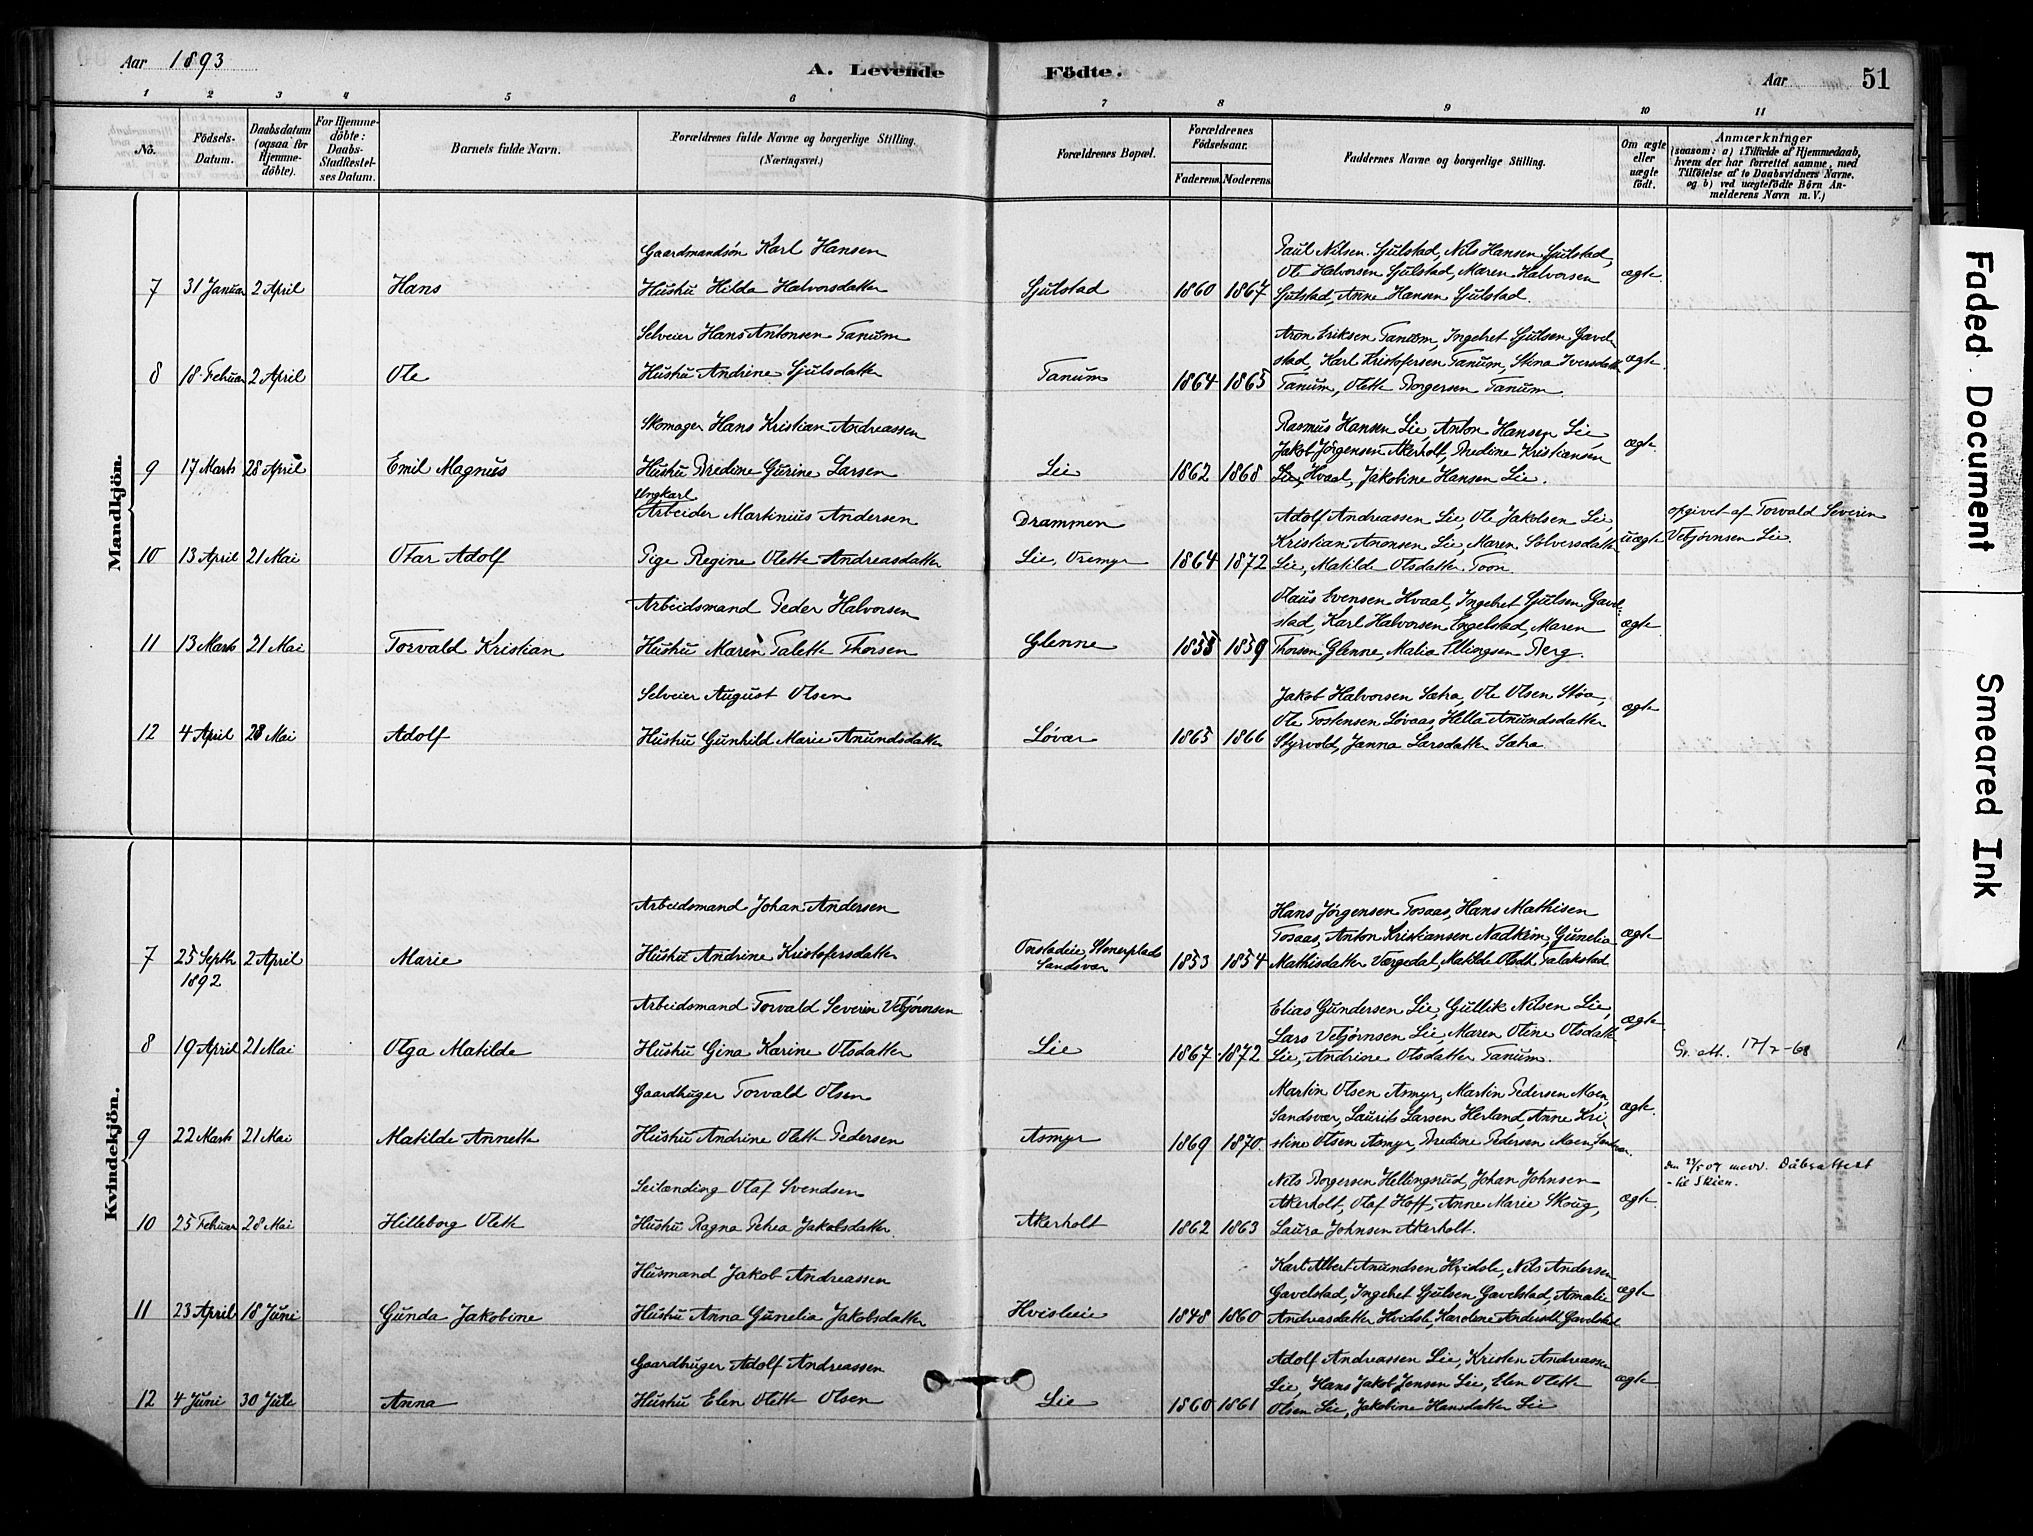 Aar 1893
A. Levende Födte.
Aar 51
1 2 3 4 5 6 7 8 9 10 11
No.
Födsels-Datum.
Daabsdatum (ogsaa for Hjemme-döbte).
For Hjemme-döbte: Daabs-Stadfæstel-ses Datum.
Barnets fulde Navn.
Forældrenes fulde Navne og borgerlige Stilling.
(Næringsvei.)
Forældrenes Bopæl.
Forældrenes Födselsaar.
Faderens Moderens
Faddernes Navne og borgerlige Stilling.
Om ægte eller uægte födt.
Anmærkninger
(saasom: a) i Tilfælde af Hjemmedaab, hvem der har forrettet samme, med Tilföielse af to Daabsvidners Navne. og b) ved uægtefödte Börn An-melderens Navn m. V.)
Mandkjön.
Gaardmandsøn Karl Hansen
Paul Nilsen Gjulstad, Nils Hansen Gjulstad,
Ole Halvorsen Gjulstad, Maren Halvorsen ægte
7 31 Januar 2 April Hans Hustru Hilda Halvorsdatter Gjulstad 1860 1867 Gjulstad, Anne Hansen Gjulstad.
Selveier Hans Antonsen Tanum
Aron Eriksen Tanum, Ingebret Gjulsen Gavel-
stad, Karl Kristofersen Tanum, Stina Iversdatter ægte
8 18 Februar 2 April Ole Hustru Andrine Gjulsdatter Tanum 1864 1865 Tanum, Olette Borgersen Tanum.
Skomager Hans Kristian Andreassen
Rasmus Hansen Lie, Anton Hansen Lie,
Jakob Jørgensen Akerholt, Bredine Kristiansen ægte
9 17 Marts 28 April Emil Magnus Hustru Bredine Gurine Larsen Lie 1862 1868 Lie, Hvaal, Jakobine Hansen Lie.
Ungkarl
Arbeider Martinius Andersen Drammen
Adolf Andreassen Lie, Ole Jakobsen Lie, opgivet af Torvald Severin
Kristian Aronsen Lie, Maren Solversdatter uægte Vebjørnsen Lie.
10 13 April 21 Mai Otar Adolf Pige Regine Olette Andreasdatter Lie, Oremyr 1864 1872 Lie, Matilde Olsdatter Toon
Arbeidsmand Peder Halvorsen
Olaus Evensen Hvaal, Ingebret Gjulsen Gavel-
stad, Karl Halvorsen Engelstad, Maren ægte
11 13 Marts 21 Mai Torvald Kristian Hustru Maren Talette Thorsen Glenne 1855 1859 Thorsen Glenne, Malia Ellingsen Berg.
Selveier August Olsen
Jakob Halvorsen Sætra, Ole Olsen Støa,
Ole Tostensen Løvaas, Hella Anundsdatter ægte
12 4 April 28 Mai Adolf Hustru Gunhild Marie Anundsdatter Løvar 1865 1866 Styrvold, Janna Larsdatter Sætra
Kvindekjön.
Arbeidsmand Johan Andersen
Hans Jørgensen Tosaas, Hans Mathisen
Tosaas, Anton Kristiansen Nadkim, Gunelia ægte
7 25 Septbr 2 April Marie Hustru Andrine Kristofersdatter Onstadeie, Stenerplads 1853 1854 Mathisdatter Værgedal, Matilde Olsdtr Falakstad
1892 Sandsvær
Arbeidsmand Torvald Severin Vebjørnsen
Elias Gundersen Lie, Gullik Nilsen Lie
Lars Vebjørnsen Lie, Maren Oline Olsdatter ægte
8 19 April 21 Mai Olga Matilde Hustru Gina Karine Olsdatter Lie 1867 1872 Lie, Andrine Olsdatter Tanum. Gr. att. 17/7-68
Gaardbruger Torvald Olsen
Martin Olsen Asmyr, Martin Pedersen Moen,
Sandsvær, Laurits Larsen Herland, Anne Kri- ægte
9 22 Marts 21 Mai Matilde Annette Hustru Andrine Olette Pedersen Asmyr 1869 1870 stine Olsen Asmyr, Bredine Pedersen Moen, Sandsvær.
Leilænding Olaf Svendsen
Nils Borgersen Hellingsrud, Johan Johnsen Dåbsattest
Akerholt, Olaf Hoff, Anne Marie Skoug, ægte - til Skien.
10 25 Februar 28 Mai Hilleborg Olette Hustru Ragna Petrea Jakobsdatter Akerholt 1862 1863 Laura Johnsen Akerholt.
Husmand Jakob Andreassen
Karl Albert Anundsen Hvidsle, Nils Andersen
Gavelstad, Ingebret Gjulsen Gavelstad, Amalie ægte
11 23 April 18 Juni Gunda Jakobine Hustru Anna Gunelia Jakobsdatter Hvisleeie 1848 1860 Andreasdatter Hvidsle, Karoline Andersdtr Gavelstad
Gaardbruger Adolf Andreassen
Adolf Andreassen Lie, Kristen Andreassen
Lie, Hans Jakob Jensen Lie, Elen Olette ægte
12 4 Juni 30 Juli Anna Hustru Elen Olette Olsen Lie 1860 1861 Olsen Lie, Jakobine Hansdatter Lie
Faded Document
Smeared Ink